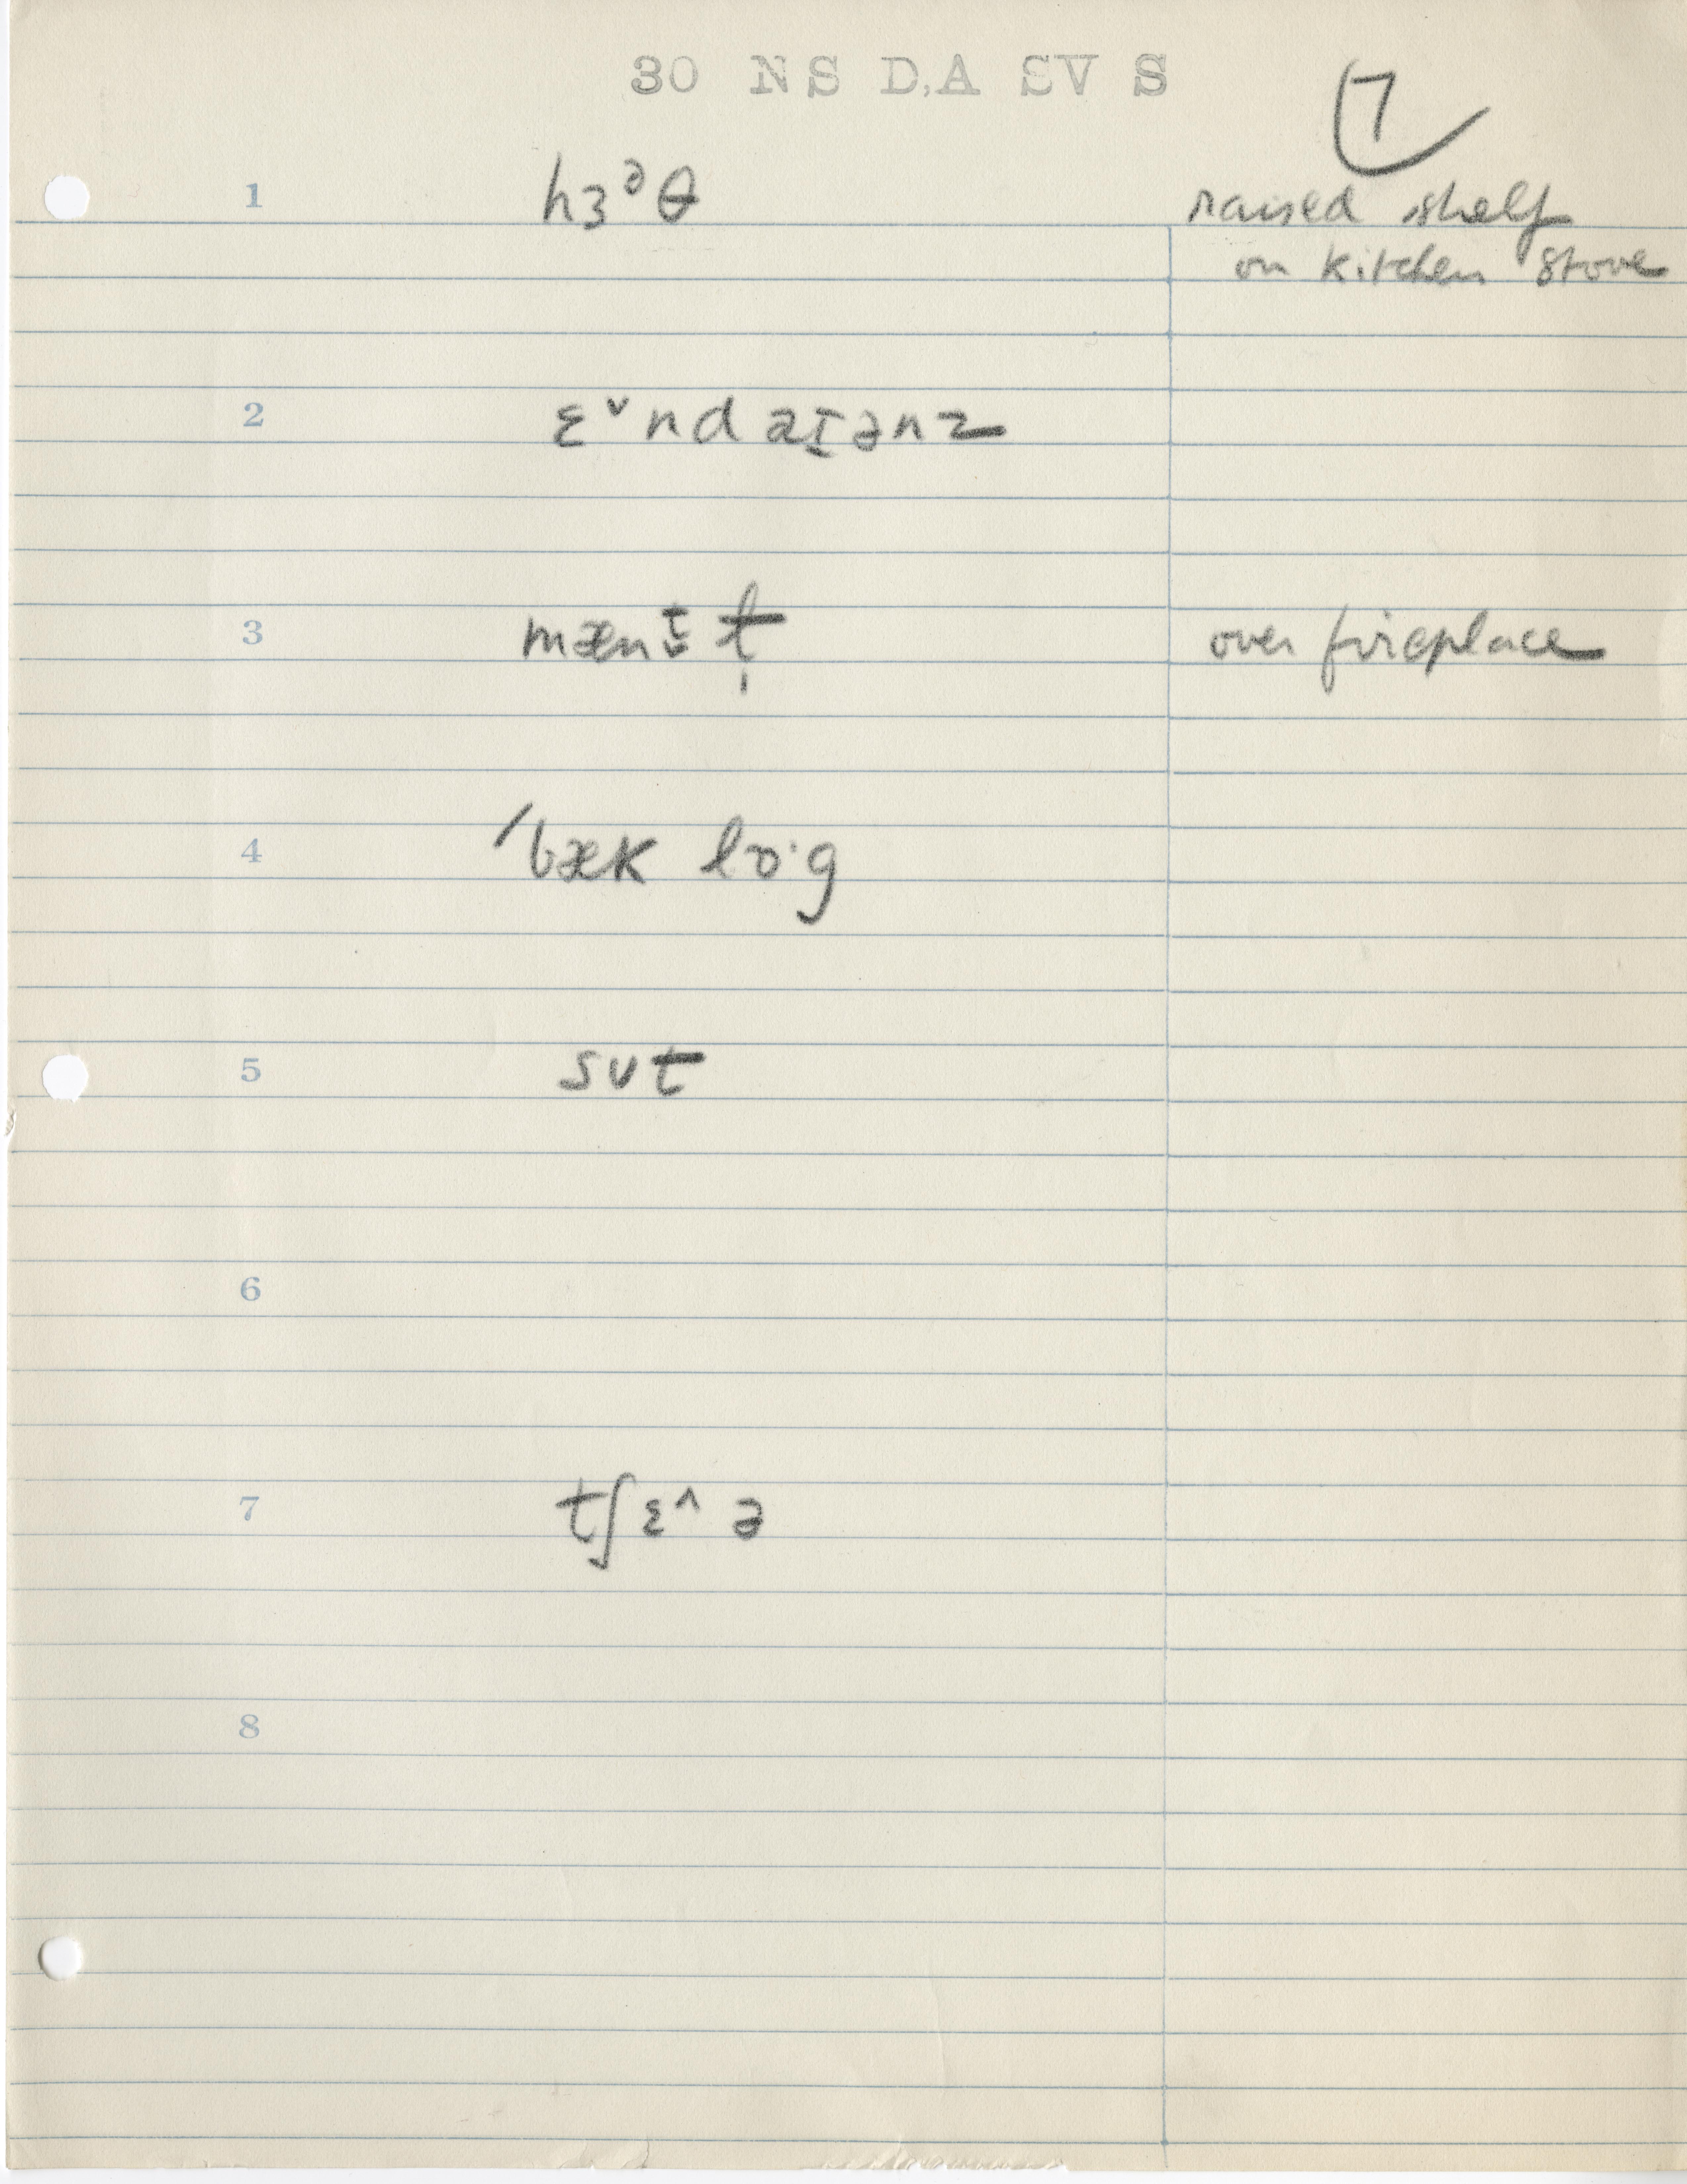 30 NS D,A SV S
7
1 hɜᵊθ raised shelf
on kitchen stove
2 ɛ˅ndaɪ̯ənz
3 mænt̬ɫ̩ over fireplace
4 ˊbæk lɒ·g
5 sʊt
6
7 tʃɛ^ ə
8